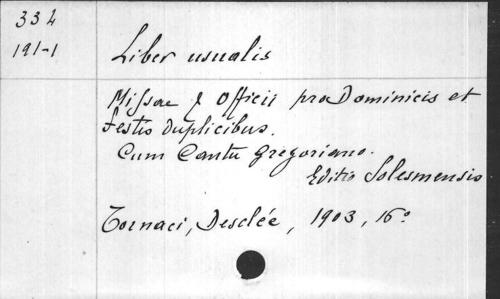 334
191-1
Liber usualis
Missae & Officii pro Dominicis et
Festis Duplicibus.
Cum Cantu Gregoriano.
Editio Solesmensis
Tornaci, Desclée, 1903, 16º